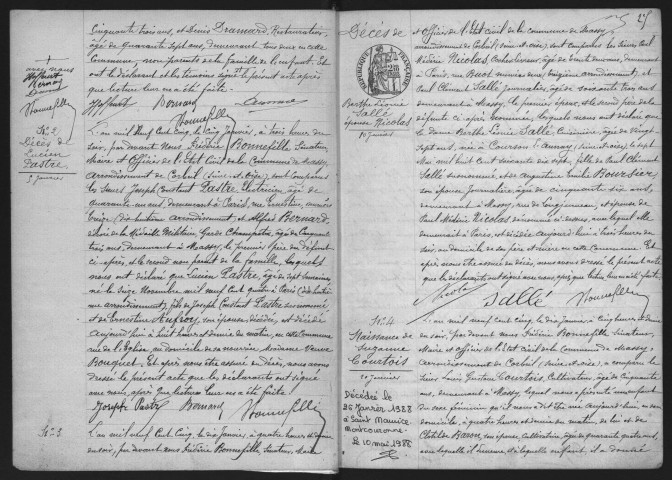 Cinquante trois ans, et Denis Dramard, Restaurateur,
âgé de Quarante Sept ans, demeurant tous deux en cette
Commune, non parents de la famille de l'enfant. Et
ont le déclarant et les témoins signé le présent acte après
que lecture leur en a été faite.
Bernard
Bonnefille
No 2
Décès de
Lucien
Pastre
5 Janvier
L'an mil neuf Cent Cinq, le cinq Janvier, à trois heures du
soir, par devant Nous Frédéric Bonnefille, Sénateur,
Maire et Officier de l'Etat Civil de la Commune de Massy,
arrondissement de Corbeil (Seine-et-Oise), sont comparus
les Sieurs Joseph Constant Pastre, électricien, âgé de
quarante un ans, demeurant à Paris, rue Ernestine, numéro
treize (dix huitième arrondissement), et Alfred Bernard,
décoré de la Médaille Militaire, Garde Champêtre, âgé de Cinquante
trois ans, demeurant à Massy, le premier père du défunt
ci-après, et le second non parent de la famille, lesquels
nous ont déclaré que Lucien Pastre, âgé de sept semaines,
né le seize Novembre mil neuf cent quatre à Paris (dix huitième
arrondissement), fils de Joseph Constant Pastre susnommé
et de Ernestine
son épouse, décédée, est décédé
aujourd'hui à huit heures et demie du matin, en cette commune,
rue de l'Eglise, au domicile de sa nourrice Madame Veuve
Bouquet. Et après nous être assuré du décès, nous avons
dressé le présent acte que les déclarants ont signé
avec nous, après que lecture leur en a été faite.
Joseph Pastre Bernard Bonnefille
No 3
L'an mil neuf Cent Cinq, le dix Janvier, à quatre heures et demie
du soir, par devant nous Frédéric Bonnefille, Sénateur, Maire
25
Décès de
RÉPUBLIQUE FRANÇAISE
Berthe Léonie
Sallé
épouse Nicolas
10 Janvier
et Officier de l'Etat civil de la commune de Massy,
arrondissement de Corbeil (Seine-et-Oise), sont comparus les Sieurs Paul
Médéric Nicolas,
âgé de trente deux ans, demeurant
à Paris, rue
arrondissement, et
Paul Clément Sallé, Journalier, âgé de soixante trois ans,
demeurant à Massy, le premier époux, et le second père de la
défunte ci après nommée, lesquels nous ont déclaré que
la dame Berthe Léonie Sallé, Cuisinière, âgée de vingt
sept ans, née à Courson l'Aunay (Seine-et-Oise), le sept
Mai mil huit cent soixante dix sept, fille de Paul Clément
Sallé susnommé, et de Augustine Emilie Boursier,
son épouse, Journalière, âgée de cinquante six ans,
demeurant à Massy, rue de Longjumeau, et épouse de
Paul Médéric Nicolas dénommé ci-dessus, avec lequel elle
demeurait à Paris, est décédée aujourd'hui à trois heures du
soir, au domicile de son père et mère en cette commune. Et
après nous être assuré du décès, nous avons dressé le présent acte
que les déclarants ont signé avec nous, après que lecture leur en a été faite.
Nicolas Sallé Bonnefille
No 4
Naissance de
Suzanne
Courtois
10 Janvier
Décédée le
26 Janvier 1988
à Saint Maurice
Montcouronne.
Le 10 mai 1988
L'an mil neuf cent cinq, le dix Janvier, à cinq heures et demie
du soir, par devant nous Frédéric Bonnefille, Sénateur,
Maire et Officier de l'Etat civil de la Commune de Massy,
arrondissement de Corbeil (Seine-et-Oise), a comparu le
Sieur Louis Gustave Courtois, Cultivateur, âgé de cinquante
ans, demeurant à Massy, lequel nous a présenté un enfant
du sexe féminin qu'il nous a dit être née aujourd'hui, en son
domicile, à quatre heures et demie du matin, de lui et de
Clotilde Baron, son épouse, Cultivatrice, âgée de quarante quatre ans,
avec laquelle il demeure, et auquel enfant, il a donné